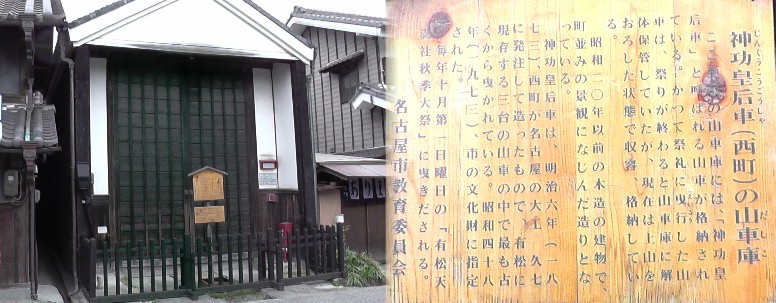 じんぐうこうごうしゃ
だしこ
神功皇后車(西町)の山車庫
ここ の山車庫には、「神功皇
后車」と呼ばれる山車が格納され
ている。かつて祭礼に曳行した山
車は、祭りが終わると山車庫に解
体保管していたが、現在は上山を
おろした状態で収容、格納してい
る。
昭和一〇年以前の木造の建物で、
町並みの景観になじんだ造りとな
っている。
神功皇后車は、明治六年(一八
七三)、西町が名古屋の大工 久七
に発注して造ったもので、有松に
現存する三台の山車の中で最も古
くから曳かれている。昭和四十八
年(一九七三)、市の文化財に指定
された。
毎年十月第一日曜日の「有松天
満社秋季大祭」に曳きだされる。
名古屋市教育委員会